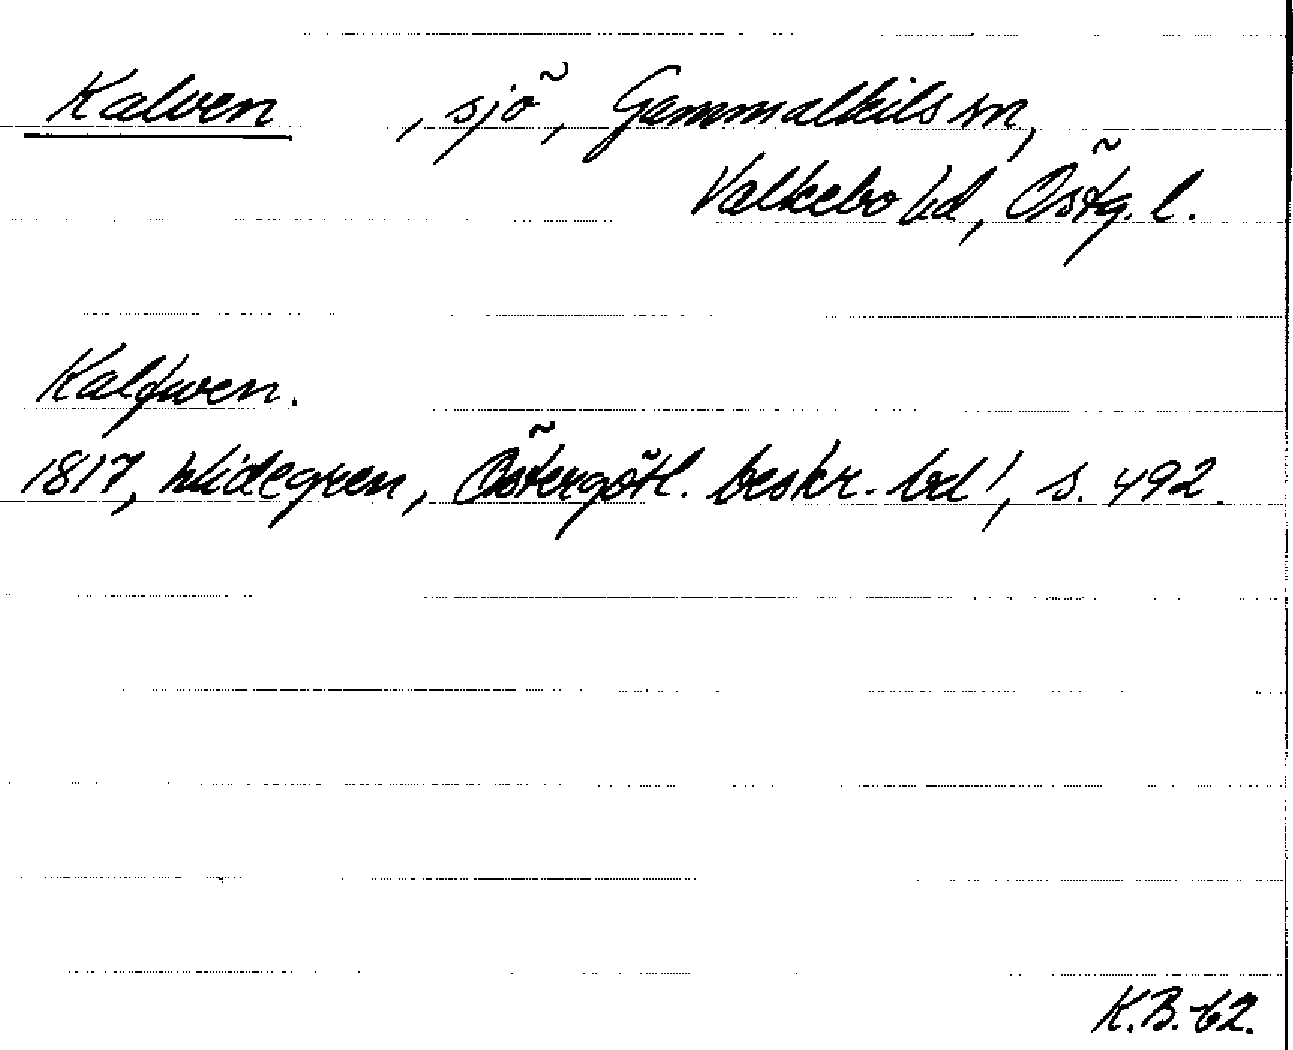 Kalven , sjö, Gammalkils sn,
Valkebo hd, Östg. l.
Kalfwen.
1817, Widegren, Östergötl. beskr. bd 1, s. 492.
K.B. 62.